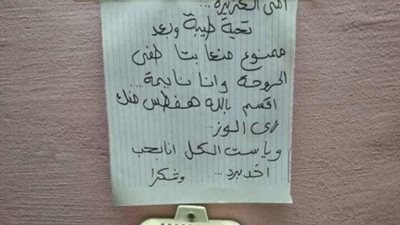 أمى العزيزة
تحية طيبة وبعد
ممنوع منعا بتا طفى
المروحة وانا نايمة..
اقسم بالله هفطس منك
زى الوز..
وياست الكل انا بحب
اخد برد... وشكرا